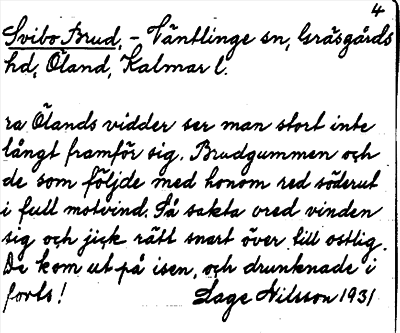 4
Svibo Brud, - Väntlinge sn, Gräsgårds
hd, Öland, Kalmar l.
ra Ölands vidder ser man stort inte
långt framför sig. Brudgummen och
de som följde med honom red söderut
i full motvind. Så sakta vred vinden
sig och jick rätt snart över till ostlig.
De kom ut på isen, och drunknade i
forts! Lage Nilsson 1931